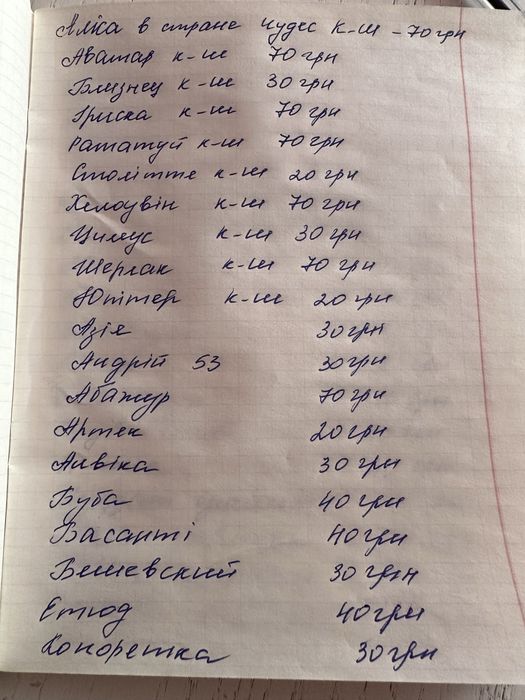 Аліса в стране чудес к-ш - 70 грн
Аватар к-ш 70 грн
Близнец к-ш 30 грн
Іриска к-ш 70 грн
Рататуй к-ш 70 грн
Століття к-ш 20 грн
Хелоувін к-ш 70 грн
Цимус к-ш 30 грн
Шерлак к-ш 70 грн
Юпітер к-ш 20 грн
Азія 30 грн
Андрій 53 30 грн
Абажур 70 грн
Артек 20 грн
Алвіка 30 грн
Буба 40 грн
Васанті 40 грн
30 грн
Етюд 40 грн
Коноретка 30 грн